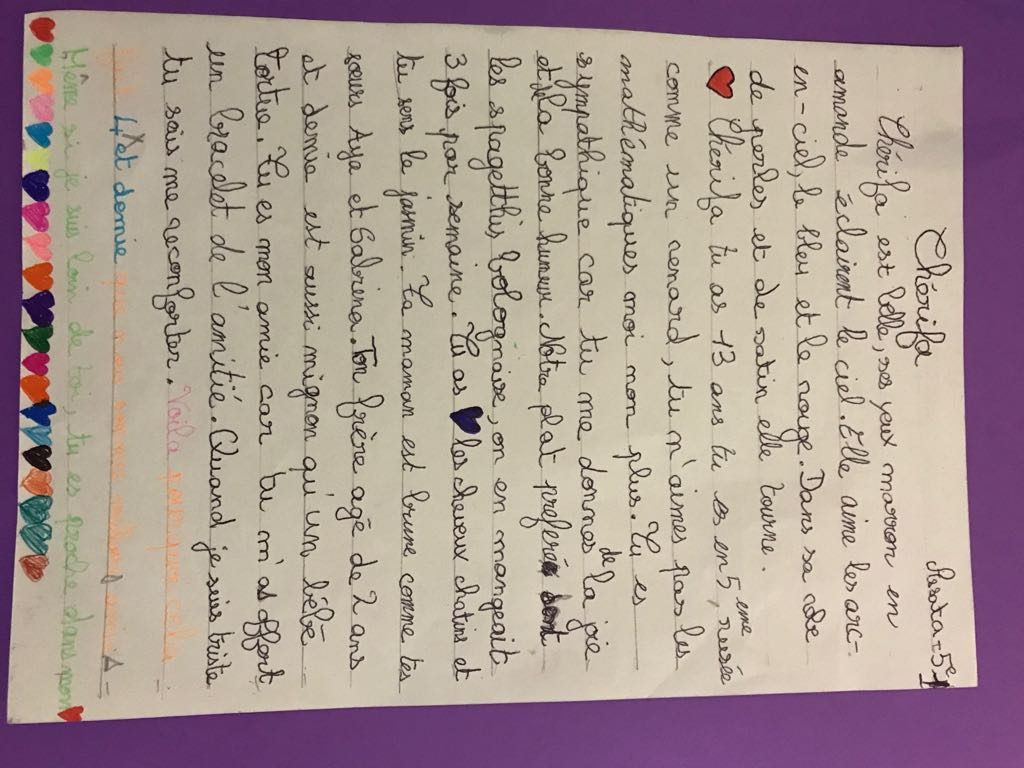 Chérifa
5e1
Chérifa est belle, ses yeux marron en
amande éclairent le ciel. Elle aime les arc-
en-ciel, le bleu et le rouge. Dans sa
de perles et de satin elle tourne.
Chérifa tu as 13 ans tu es en 5 eme, rusée
comme un renard, tu n'aimes pas les
mathématiques moi non plus. Tu es
sympathique car tu me donnes de la joie
et de la bonne humeur. Notre plat preferé
les spagetthis bolognaise, on en mangeait
3 fois par semaine. Tu as les cheveux chatins et
tu sens le jasmin. Ta maman est brune comme tes
sœurs Aya et Sabrina. Ton frère agé de 2 ans
et demie est aussi mignon qu'un bébé
tortue. Tu es mon amie car tu m'as offert
un bracelet de l'amitié. Quand je suis triste
tu sais me reconforter. Voila pourquoi cela
4 et demie que nous sommes amies
Même si je suis loin de toi, tu es proche dans mon